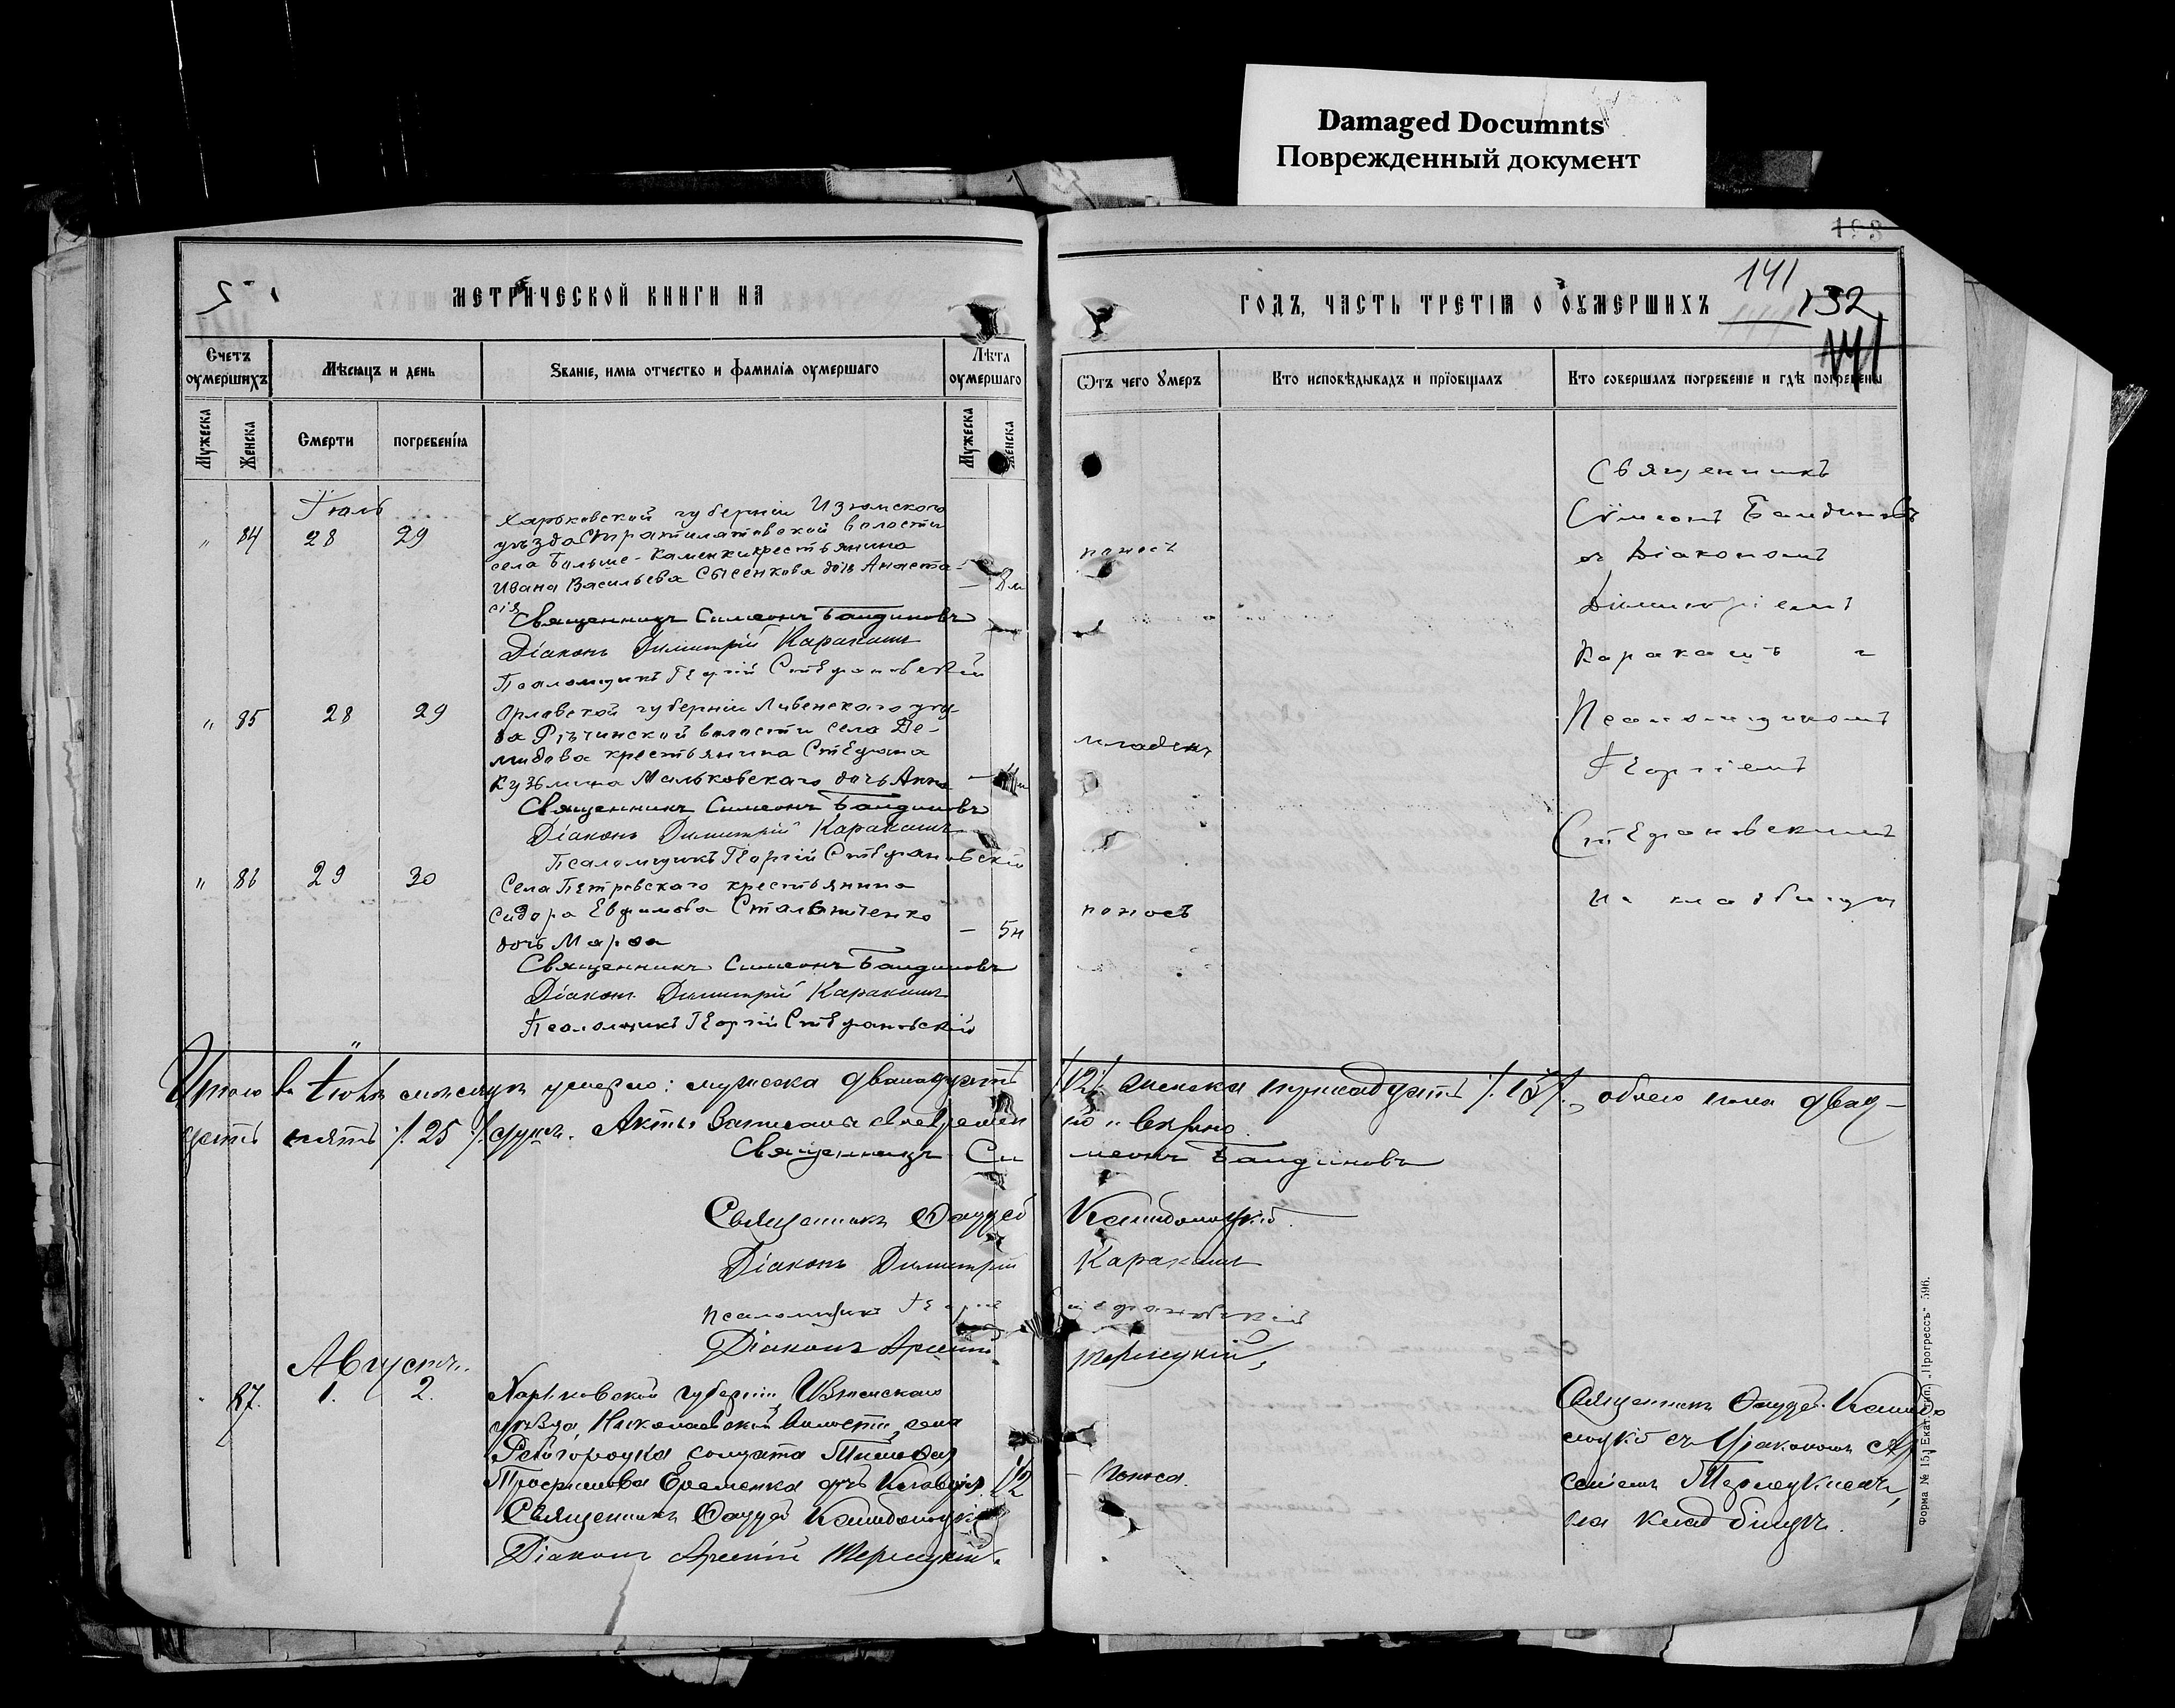 Damaged Documnts
Поврежденный документ
МЕТРИЧЕСКОЙ КНИГИ НА
ГОДЪ, ЧАСТЬ ТРЕТІѦ О ОУМЕРШИХЪ
141
132
141
Счетъ оумершихъ
Мѣсяцъ и день
Званіе, имѧ отчество и фамиліѧ оумершаго
Лѣта оумершаго
Ѿтъ чего Умеръ
Кто исповѣдывалъ и пріобщалъ
Кто совершалъ погребеніе и гдѣ погребены
Мужеска
Женска
Смерти
погребеніѧ
Мужеска
Женска
Іюль
" 84 28 29
Харьковской губерніи Изюмского
уѣзда Стратилатовской волости
села Больше-Каменки крестьянина
Ивана Васильева Сысенкова дочь Анаста-
сія
— 8м
поносъ
Священникъ Симеонъ Бандиновъ
Діаконъ Димитрій Каракашъ
Псаломщикъ Георгій Стефановскій
Священникъ
Симеонъ Бандиновъ
съ Діакономъ
Димитріемъ
Каракашъ и
Псаломщикомъ
Георгіемъ
Стефановскимъ
на кладбищѣ
" 85 28 29
Орловской губерніи Ливенского уѣз-
да Рѣчинской волости села Де-
мидова крестьянина Стефана
Кузьмина Мальковскаго дочь Анна —
младен.
Священникъ Симеонъ Бандиновъ
Діаконъ Димитрій Каракашъ
Псаломщикъ Георгій Стефановскій
" 86 29 30
Села Петровскаго крестьянина
Сидора Евфимова
дочь Марѳа
— 5н
поносъ
Священникъ Симеонъ Бандиновъ
Діаконъ Димитрій Каракашъ
Псаломщикъ Георгій Стефановскій
Итого въ Іюлѣ мѣсяцѣ умерло: мужеска двѣнадцать /12/. женска тринадцать /.13/., обоего пола двад-
цать пять /.25./ душъ. Акты записаны своевременно и вѣрно.
Священникъ Симеонъ Бандиновъ
Священникъ Ѳаддей
Діаконъ Димитрій Каракашъ
Псаломщикъ Георгій Стефановскій
Діаконъ Арсеній
Августъ.
87. 1. 2.
Харьковской губерніи, Изюмскаго
уѣзда, Николаевской волости, села
Райгородка солдата Тимоѳея
Трофимова Еременка дочь Клавдія. 1/2
— Поноса.
Священникъ Ѳаддей
Діаконъ Арсеній
Священникъ Ѳаддей
съ Діакономъ Ар-
сеніемъ
на кладбищѣ.
Форма № 15. Екат. тип. „Прогрессъ" 596.